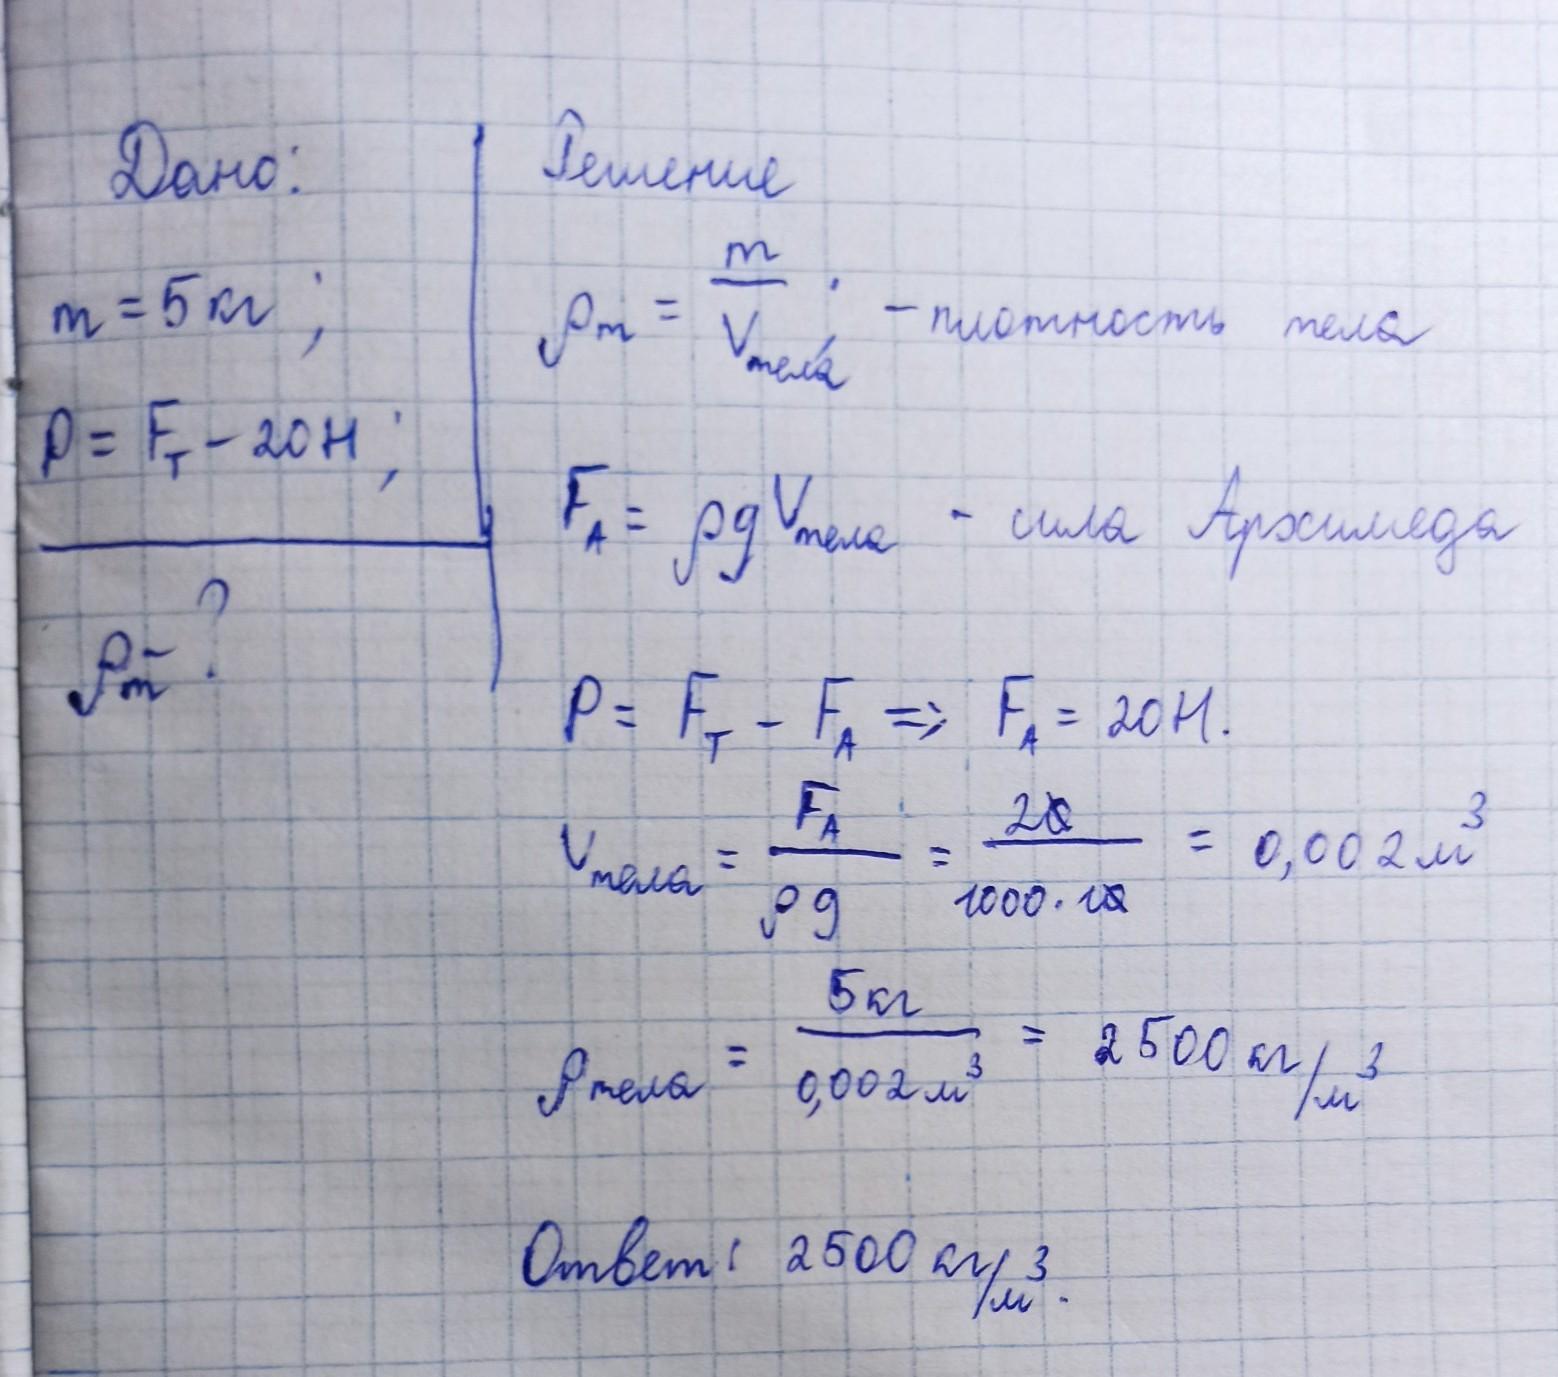 Дано:
m = 5 кг ;
P = Fт - 20 Н ;
ρт - ?
Решение
ρт = m / Vтела ; - плотность тела
FA = ρgVтела - сила Архимеда
P = Fт - FA => FA = 20 Н.
Vтела = FA / ρg = 20 / 1000 · 10 = 0,002 м³
ρтела = 5 кг / 0,002 м³ = 2500 кг/м³
Ответ: 2500 кг/м³.